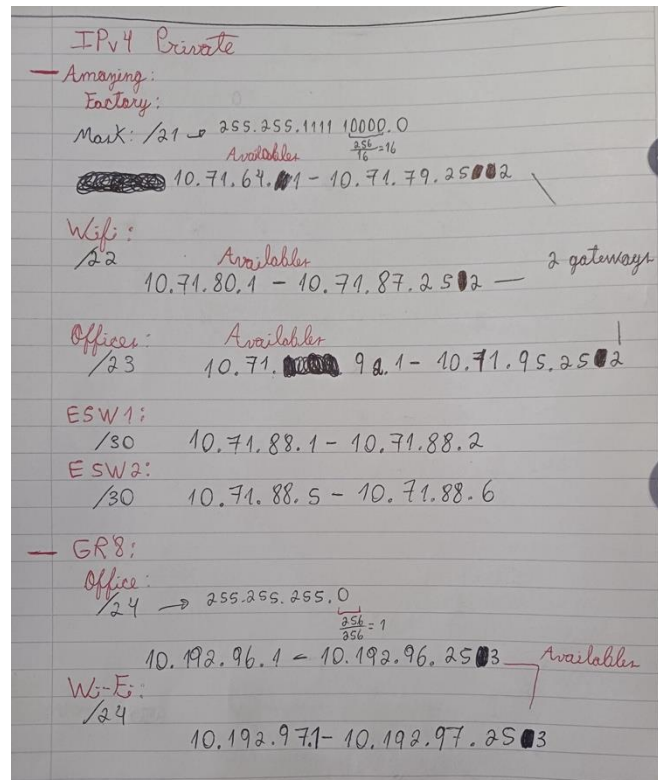 IPv4 Private
Amazing:
Factory:
Mask: /21 → 255.255.1111 10000.0
Availables 256/16=16
10.71.64.1 - 10.71.79.252
Wifi:
/22 Availables 2 gateways
10.71.80.1 - 10.71.87.252
Offices: Availables
/23 10.71.92.1 - 10.71.95.252
ESW1:
/30 10.71.88.1 - 10.71.88.2
ESW2:
/30 10.71.88.5 - 10.71.88.6
GR8:
Office:
/24 → 255.255.255.0
256/256=1
10.192.96.1 - 10.192.96.253 Availables
Wi-Fi:
/24
10.192.97.1- 10.192.97.253